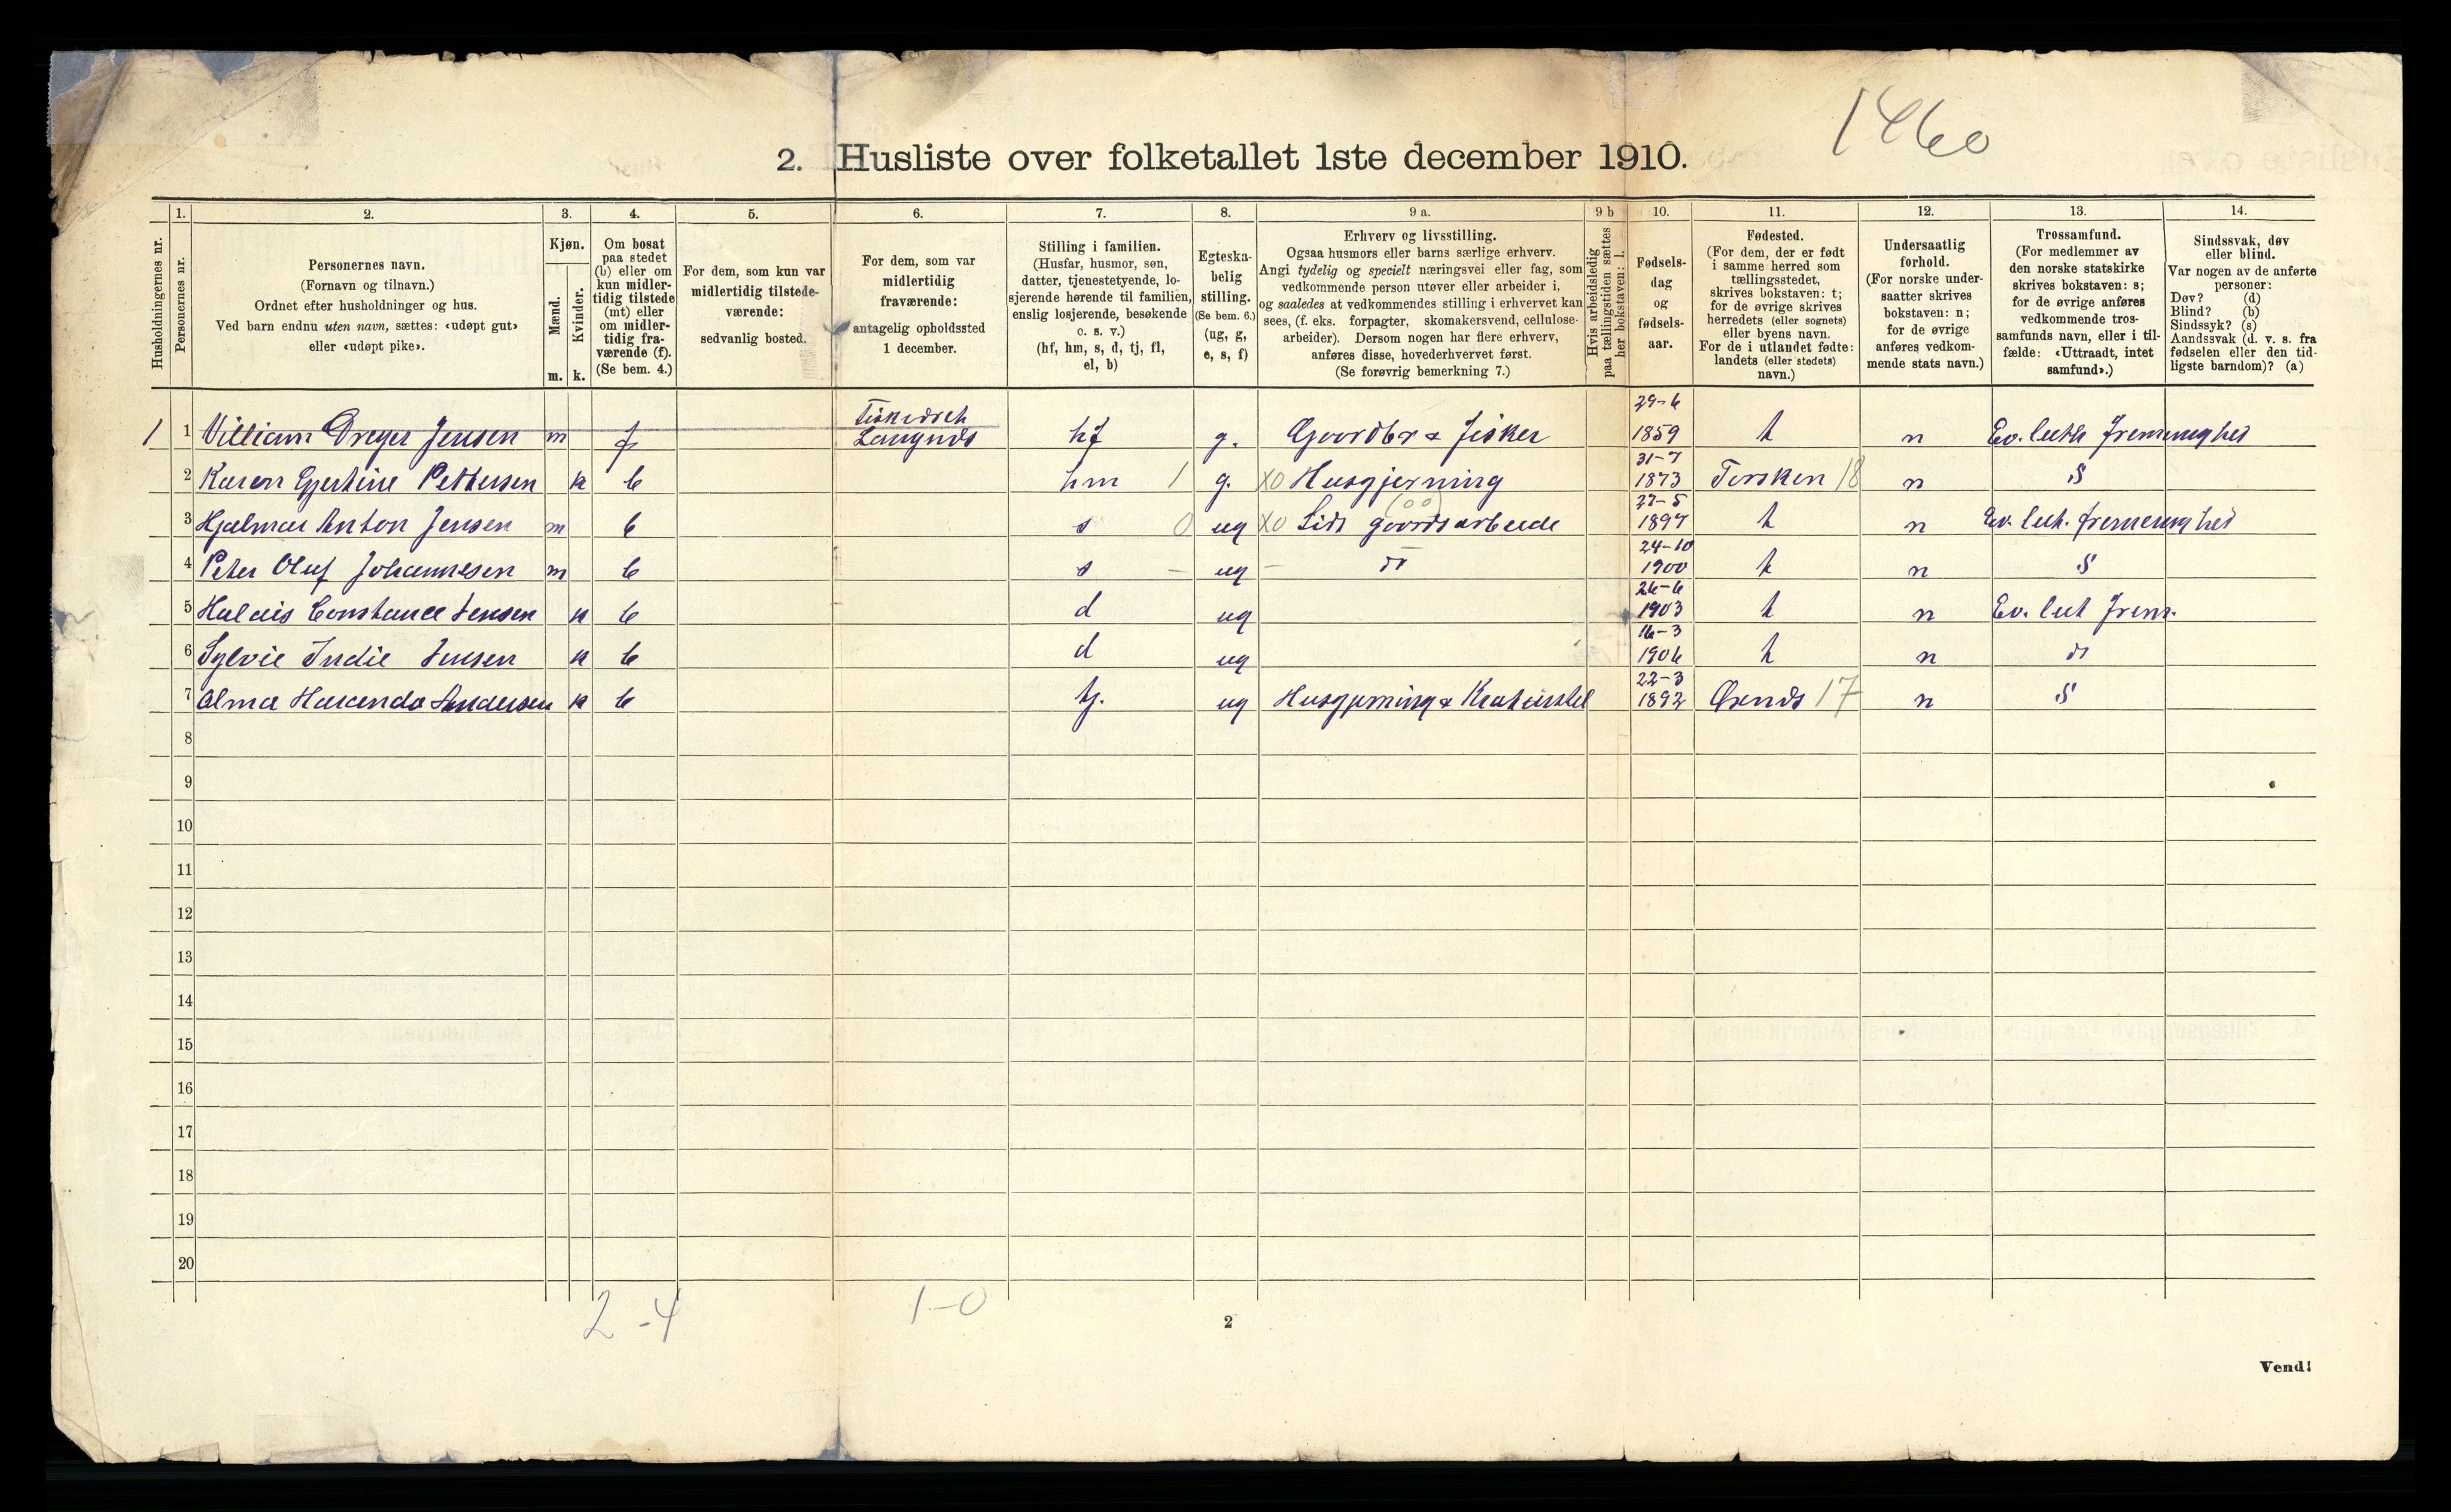 1460
2. Husliste over folketallet 1ste december 1910.
Husholdningernes nr.
1.
Personernes nr.
2.
Personernes navn.
(Fornavn og tilnavn.)
Ordnet efter husholdninger og hus.
Ved barn endnu uten navn, sættes: «udøpt gut»
eller «udøpt pike».
3.
Kjøn.
Mænd.
Kvinder.
m. k.
4.
Om bosat
paa stedet
(b) eller om
kun midler-
tidig tilstede
(mt) eller
om midler-
tidig fra-
værende (f).
(Se bem. 4.)
5.
For dem, som kun var
midlertidig tilstede-
værende:
sedvanlig bosted.
6.
For dem, som var
midlertidig
fraværende:
antagelig opholdssted
1 december.
7.
Stilling i familien.
(Husfar, husmor, søn,
datter, tjenestetyende, lo-
sjerende hørende til familien,
enslig losjerende, besøkende
o. s. v.)
(hf, hm, s, d, tj, fl,
el, b)
8.
Egteska-
belig
stilling.
(Se bem. 6.)
(ug, g,
e, s, f)
9 a.
Erhverv og livsstilling.
Ogsaa husmors eller barns særlige erhverv.
Angi tydelig og specielt næringsvei eller fag, som
vedkommende person utøver eller arbeider i,
og saaledes at vedkommendes stilling i erhvervet kan
sees, (f. eks. forpagter, skomakersvend, cellulose-
arbeider). Dersom nogen har flere erhverv,
anføres disse, hovederhvervet først.
(Se forøvrig bemerkning 7.)
9 b
Hvis arbeidsledig
paa tællingstiden sættes
her bokstaven: l.
10.
Fødsels-
dag
og
fødsels-
aar.
11.
Fødested.
(For dem, der er født
i samme herred som
tællingsstedet,
skrives bokstaven: t;
for de øvrige skrives
herredets (eller sognets)
eller byens navn.
For de i utlandet fødte:
landets (eller stedets)
navn.)
12.
Undersaatlig
forhold.
(For norske under-
saatter skrives
bokstaven: n;
for de øvrige
anføres vedkom-
mende stats navn.)
13.
Trossamfund.
(For medlemmer av
den norske statskirke
skrives bokstaven: s;
for de øvrige anføres
vedkommende tros-
samfunds navn, eller i til-
fælde: «Uttraadt, intet
samfund».)
14.
Sindssvak, døv
eller blind.
Var nogen av de anførte
personer:
Døv? (d)
Blind? (b)
Sindssyk? (s)
Aandssvak (d. v. s. fra
fødselen eller den tid-
ligste barndom)? (a)
1 1 Villiam Dreyer Jensen m f hf g. Gaardbr & Fisker 29-6 1859 t n Ev. luth
2 Karen Gjertine Pettersen k b hm 1 g. XO Husgjerning 31-7 1873 Torsken 18 n s
3 Hjalmar Anton Jensen m b s 0 ug XO (00) gaardsarbeide 27-5 1897 t n Ev. luth.
4 Peter Oluf Johannesen m b s - ug - 24-10 1900 t n s
5 Constance Jensen k b d ug 26-6 1903 t n Ev. lut
6 Sylvie Indie Jensen k b d ug 16-3 1906 t n
7 Alma Andersen k b tj. ug Husgjerning & 22-3 1892 17 n s
8
9
10
11
12
13
14
15
16
17
18
19
20
2-4
1-0
2
Vend!